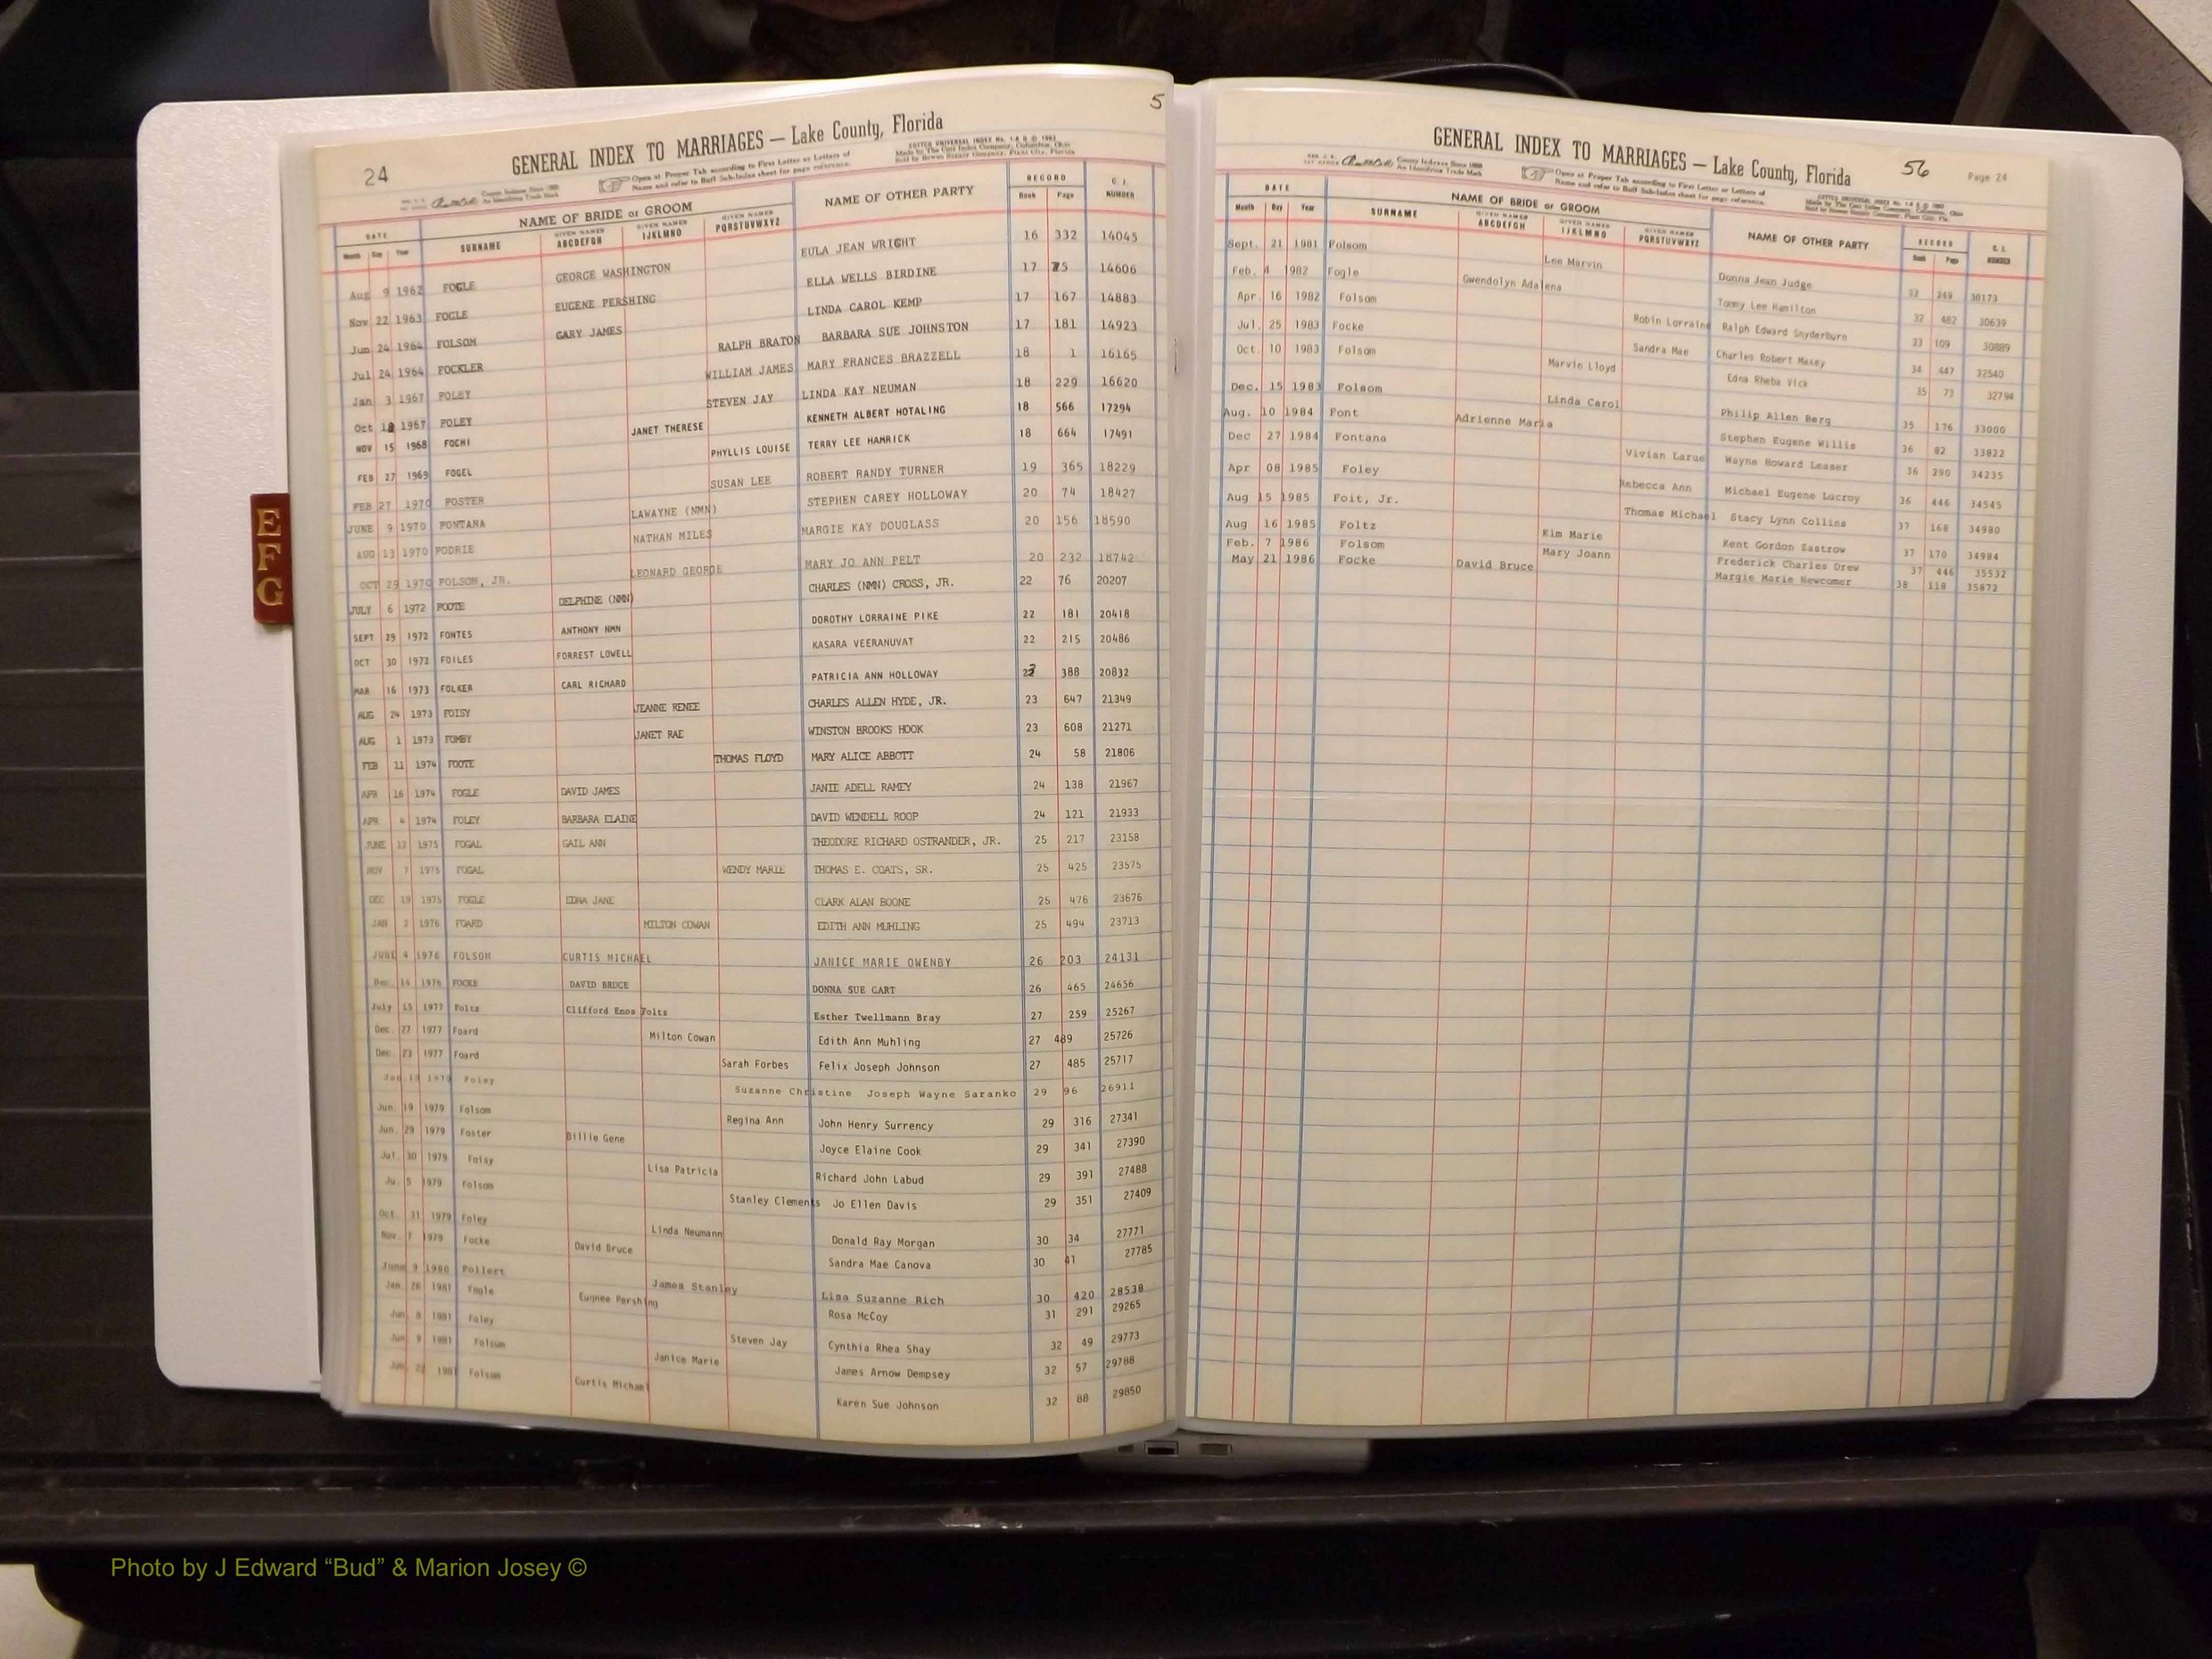 24
5
GENERAL INDEX TO MARRIAGES — Lake County, Florida
Open at Proper Tab according to First Letter or Letters of
Name and refer to Buff Sub-Index sheet for page reference.
DATE NAME OF BRIDE or GROOM NAME OF OTHER PARTY RECORD
Month Day Year SURNAME GIVEN NAMES ABCDEFGH GIVEN NAMES IJKLMNO GIVEN NAMES PQRSTUVWXYZ Book Page NUMBER
Aug 9 1962 FOGLE GEORGE WASHINGTON EULA JEAN WRIGHT 16 332 14045
Nov 22 1963 FOGLE EUGENE PERSHING ELLA WELLS BIRDINE 17 75 14606
Jun 24 1964 FOLSOM GARY JAMES LINDA CAROL KEMP 17 167 14883
Jul 24 1964 FOCKLER RALPH BRATON BARBARA SUE JOHNSTON 17 181 14923
Jan 3 1967 FOLEY WILLIAM JAMES MARY FRANCES BRAZZELL 18 1 16165
Oct 1967 FOLEY STEVEN JAY LINDA KAY NEUMAN 18 229 16620
NOV 15 1968 FOCHI JANET THERESE KENNETH ALBERT HOTALING 18 566 17294
FEB 27 1969 FOGEL PHYLLIS LOUISE TERRY LEE HAMRICK 18 664 17491
FEB 27 1970 FOSTER SUSAN LEE ROBERT RANDY TURNER 19 365 18229
JUNE 9 1970 FONTANA LAWAYNE (NMN) STEPHEN CAREY HOLLOWAY 20 74 18427
AUG 13 1970 FODRIE NATHAN MILES MARGIE KAY DOUGLASS 20 156 18590
OCT 29 1970 FOLSOM, JR. LEONARD GEORGE MARY JO ANN PELT 20 232 18742
JULY 6 1972 FOOTE DELPHINE (NMN) CHARLES (NMN) CROSS, JR. 22 76 20207
SEPT 29 1972 FONTES ANTHONY NMN DOROTHY LORRAINE PIKE 22 181 20418
OCT 30 1972 FOILES FORREST LOWELL KASARA VEERANUVAT 22 215 20486
MAR 16 1973 FOLKER CARL RICHARD PATRICIA ANN HOLLOWAY 22 388 20832
AUG 24 1973 FOISY JEANNE RENEE CHARLES ALLEN HYDE, JR. 23 647 21349
AUG 1 1973 FOMBY JANET RAE WINSTON BROOKS HOOK 23 608 21271
FEB 11 1974 FOOTE THOMAS FLOYD MARY ALICE ABBOTT 24 58 21806
APR 16 1974 FOGLE DAVID JAMES JANIE ADELL RAMEY 24 138 21967
APR 4 1974 FOLEY BARBARA ELAINE DAVID WENDELL ROOP 24 121 21933
JUNE 12 1975 FOGAL GAIL ANN THEODORE RICHARD OSTRANDER, JR. 25 217 23158
NOV 7 1975 FOGAL WENDY MARIE THOMAS E. COATS, SR. 25 425 23575
DEC 19 1975 FOGLE EDNA JANE CLARK ALAN BOONE 25 476 23676
JAN 2 1976 FOARD MILTON COWAN EDITH ANN MUHLING 25 494 23713
JUNE 4 1976 FOLSOM CURTIS MICHAEL JANICE MARIE OWENBY 26 203 24131
Dec. 14 1976 FOCKE DAVID BRUCE DONNA SUE CART 26 465 24656
July 15 1977 Foltz Clifford Enos Foltz Esther Twellmann Bray 27 259 25267
Dec. 27 1977 Foard Milton Cowan Edith Ann Muhling 27 489 25726
Dec. 23 1977 Foard Sarah Forbes Felix Joseph Johnson 27 485 25717
Jan 1979 Foisy Suzanne Christine Joseph Wayne Saranko 29 96 26911
Jun. 19 1979 Folsom Regina Ann John Henry Surrency 29 316 27341
Jun. 29 1979 Foster Billie Gene Joyce Elaine Cook 29 341 27390
Jul. 30 1979 Foisy Lisa Patricia Richard John Labud 29 391 27488
Ju. 5 1979 Folsom Stanley Clements Jo Ellen Davis 29 351 27409
Oct. 31 1979 Foley Linda Neumann Donald Ray Morgan 30 34 27771
Nov. 7 1979 Focke David Bruce Sandra Mae Canova 30 41 27785
June 9 1980 Follert James Stanley Lisa Suzanne Rich 30 420 28538
Jan. 26 1981 Fogle Eugnee Pershing Rosa McCoy 31 291 29265
Jun. 8 1981 Foley Steven Jay Cynthia Rhea Shay 32 49 29773
Jun. 9 1981 Folsum Janice Marie James Arnow Dempsey 32 57 29788
Jun. 22 1981 Folsom Curtis Michael Karen Sue Johnson 32 88 29850
EFG
GENERAL INDEX TO MARRIAGES — Lake County, Florida
56
Page 24
Open at Proper Tab according to First Letter or Letters of
Name and refer to Buff Sub-Index sheet for page reference.
DATE NAME OF BRIDE or GROOM NAME OF OTHER PARTY RECORD
Month Day Year SURNAME GIVEN NAMES ABCDEFGH GIVEN NAMES IJKLMNO GIVEN NAMES PQRSTUVWXYZ Book Page NUMBER
Sept. 21 1981 Folsom Lee Marvin Donna Jean Judge 32 249 30173
Feb. 4 1982 Fogle Gwendolyn Adalena Tommy Lee Hamilton 32 482 30639
Apr. 16 1982 Folsom Robin Lorraine Ralph Edward Snyderburn 33 109 30889
Jul. 25 1983 Focke Sandra Mae Charles Robert Maxey 34 647 32540
Oct. 10 1983 Folsom Marvin Lloyd Edna Rheba Vick 35 73 32794
Dec. 15 1983 Folsom Linda Carol Philip Allen Berg 35 176 33000
Aug. 10 1984 Font Adrienne Maria Stephen Eugene Willis 36 82 33822
Dec 27 1984 Fontana Vivian Larue Wayne Howard Leaser 36 290 34235
Apr 08 1985 Foley Rebecca Ann Michael Eugene Lacroy 36 446 34545
Aug 15 1985 Foit, Jr. Thomas Michael Stacy Lynn Collins 37 168 34980
Aug 16 1985 Foltz Kim Marie Kent Gordon Zastrow 37 170 34984
Feb. 7 1986 Folsom Mary Joann Frederick Charles Drew 37 446 35532
May 21 1986 Focke David Bruce Margie Marie Newcomer 38 118 35872
Photo by J Edward “Bud” & Marion Josey ©